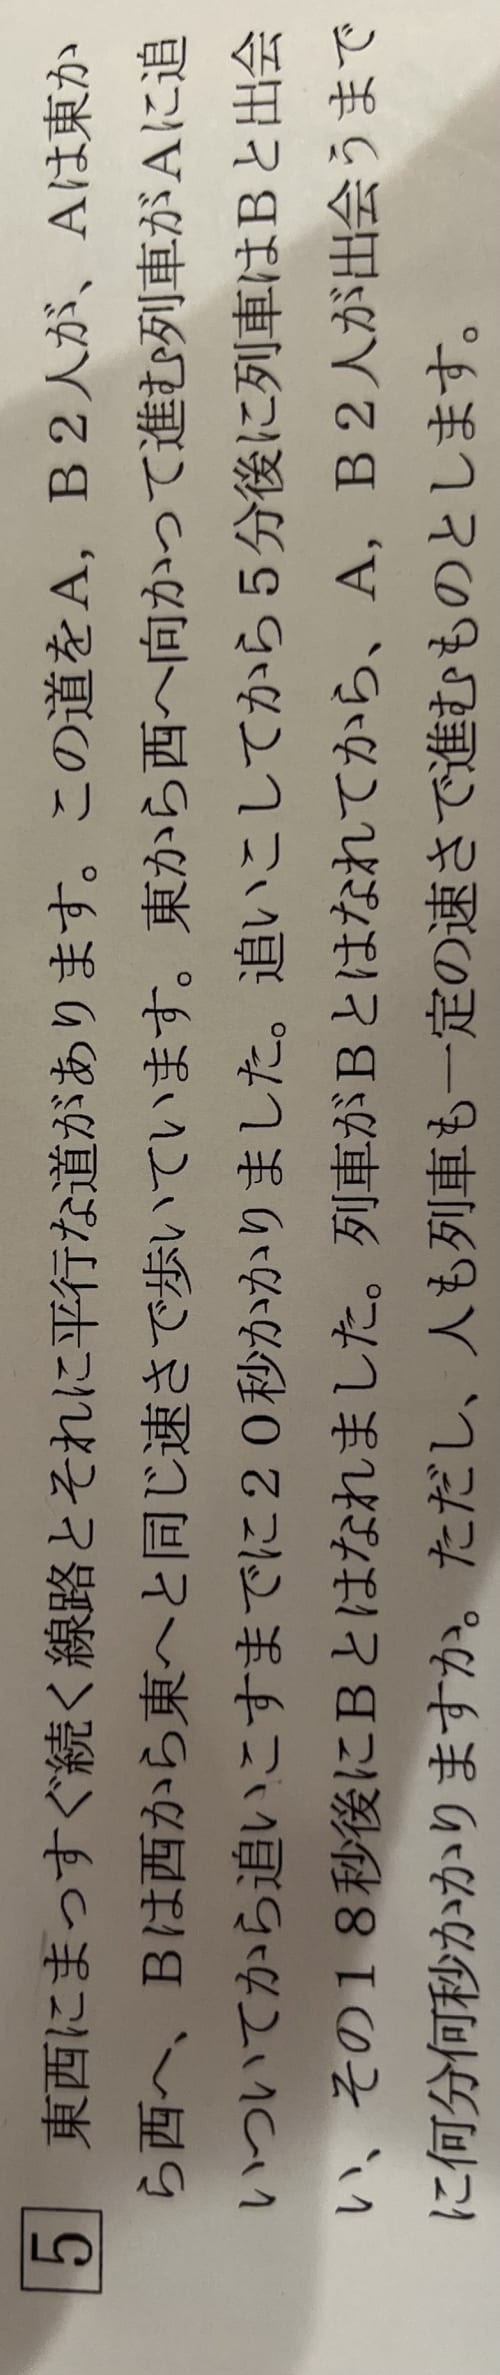 5 東西にまっすぐ続く線路とそれに平行な道があります。この道をA，B２人が、Aは東か
ら西へ、Bは西から東へと同じ速さで歩いています。東から西へ向かって進む列車がAに追
いついてから追いこすまでに２０秒かかりました。追いこしてから５分後に列車はBと出会
い、その１８秒後にBとはなれました。列車がBとはなれてから、A，B２人が出会うまで
に何分何秒かかりますか。ただし、人も列車も一定の速さで進むものとします。